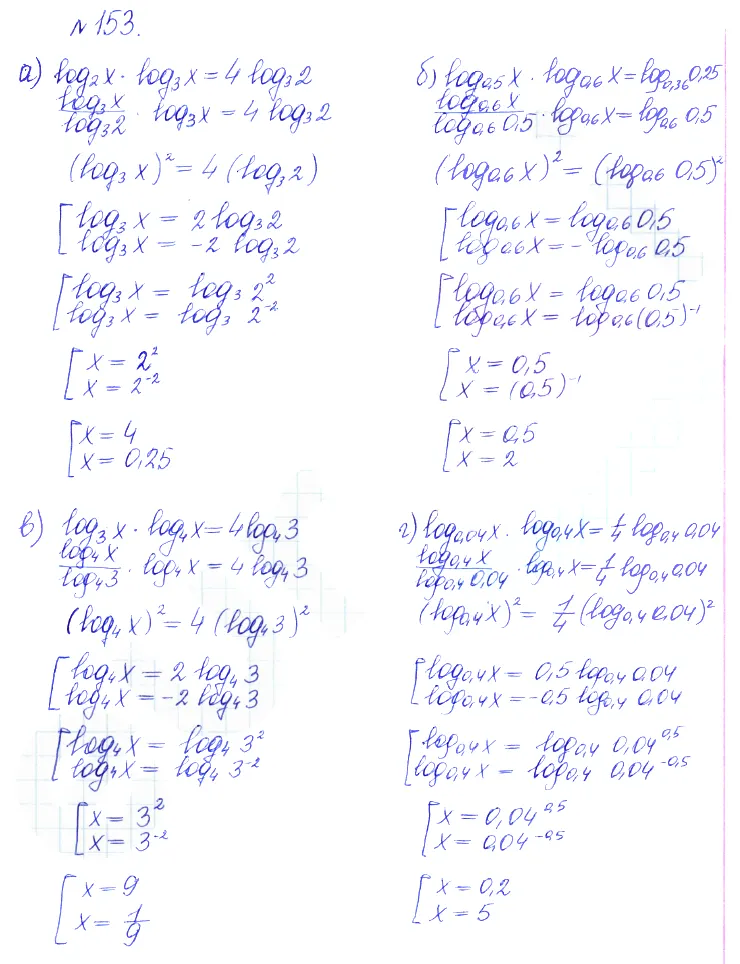 № 153.
а) log₂x · log₃x = 4 log₃2
log₃x / log₃2 · log₃x = 4 log₃2
(log₃x)² = 4 (log₃2)
[ log₃x = 2 log₃2
log₃x = -2 log₃2
[ log₃x = log₃ 2²
log₃x = log₃ 2⁻²
[ x = 2²
x = 2⁻²
[ x = 4
x = 0,25
б) log₀,₅x · log₀,₆x = log₀,₃₆0,25
log₀,₆x / log₀,₆0,5 · log₀,₆x = log₀,₆ 0,5
(log₀,₆x)² = (log₀,₆ 0,5)²
[ log₀,₆x = log₀,₆ 0,5
log₀,₆x = - log₀,₆ 0,5
[ log₀,₆x = log₀,₆ 0,5
log₀,₆x = log₀,₆(0,5)⁻¹
[ x = 0,5
x = (0,5)⁻¹
[ x = 0,5
x = 2
в) log₃x · log₄x = 4log₄3
log₄x / log₄3 · log₄x = 4 log₄3
(log₄x)² = 4 (log₄3)²
[ log₄x = 2 log₄3
log₄x = -2 log₄3
[ log₄x = log₄ 3²
log₄x = log₄ 3⁻²
[ x = 3²
x = 3⁻²
[ x = 9
x = 1/9
г) log₀,₀₄x · log₀,₄x = 1/4 log₀,₄ 0,04
log₀,₄x / log₀,₄ 0,04 · log₀,₄x = 1/4 log₀,₄ 0,04
(log₀,₄x)² = 1/4 (log₀,₄ 0,04)²
[ log₀,₄x = 0,5 log₀,₄ 0,04
log₀,₄x = -0,5 log₀,₄ 0,04
[ log₀,₄x = log₀,₄ 0,04^0,5
log₀,₄x = log₀,₄ 0,04^-0,5
[ x = 0,04^0,5
x = 0,04^-0,5
[ x = 0,2
x = 5